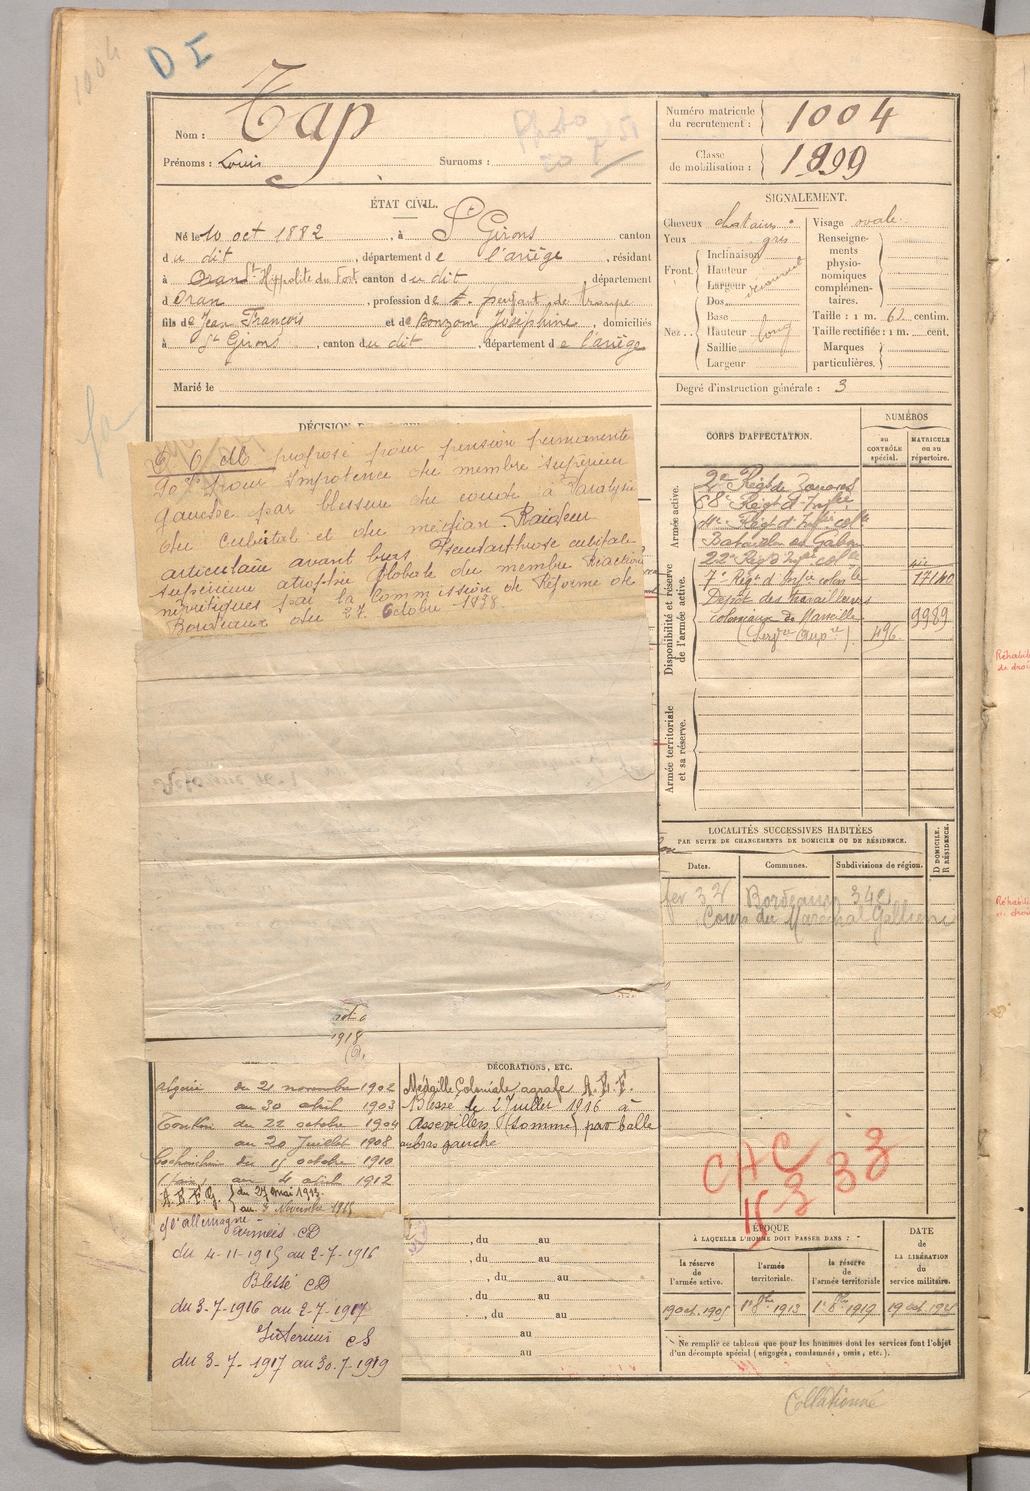 1004
D I
Nom : Tap
Prénoms : Louis Surnoms :
Photo
Numéro matricule du recrutement : 1004
Classe de mobilisation : 1899
ÉTAT CIVIL.
Né le 10 oct 1882, à St Girons canton
du dit, département de l'ariège, résidant
à Oran St Hippolite du Fort, canton du dit département
d Oran, profession de enfant de troupe
fils de Jean François et de Bonzom Joséphine, domiciliés
à St Girons, canton du dit, département de l'ariège
Marié le
SIGNALEMENT.
Cheveux chatains
Yeux gris
Front. Inclinaison
Hauteur
Largeur
Nez. Dos
Base
Hauteur long
Saillie
Largeur
Visage ovale
Renseignements physionomiques complémentaires.
Taille : 1 m. 62 centim.
Taille rectifiée : 1 m. cent.
Marques particulières.
Degré d'instruction générale : 3
proposé pour pension permanente
90 % pour Impotence du membre supérieur
gauche par blessure du coude à Paralysie
du cubital et du médian. Raideur
articulaire avant bras Pseudarthrose cubitale
supérieure atrophie globale du membre Réactions
névritiques par la Commission de Réforme de
Bordeaux du 27 Octobre 1938.
CORPS D'AFFECTATION.
NUMÉROS
au CONTRÔLE spécial.
MATRICULE ou au répertoire.
Armée active.
2e Régt de Zouaves
68e Régt d'Infrie
4e Régt d'Infrie colle
Bataillon du Gabon
Disponibilité et réserve de l'armée active.
22e Régt d'Infie colle
7e Régt d'Infie colonle 17140
Depot des travailleurs
coloniaux de Marseille 9989
496
Armée territoriale et sa réserve.
LOCALITÉS SUCCESSIVES HABITÉES
PAR SUITE DE CHANGEMENTS DE DOMICILE OU DE RÉSIDENCE.
Dates. Communes. Subdivisions de région.
D DOMICILE. R RÉSIDENCE.
fev 32 Bordeaux 342
Cours du Maréchal Gallieni
1918
Algérie du 21 novembre 1902
au 30 avril 1903
Tonkin du 22 octobre 1904
au 20 Juillet 1908
Cochinchine du 15 octobre 1910
au 4 avril 1912
A.E.F.G. du 24 mai 1913
au 3 Novembre 1915
DÉCORATIONS, ETC.
Médaille Coloniale agrafe A.E.F.
Blessé le 2 Juillet 1916 à
Assevillers (Somme) par balle
au bras gauche
CAC
33
Ct l'allemagne
armées CD
du 4-11-1915 au 2-7-1916
Blessé CD
du 3-7-1916 au 2-7-1917
Interieur CS
du 3-7-1917 au 30-7-1919
, du au
, du au
, du au
, du au
, du au
au
au
ÉPOQUE
À LAQUELLE L'HOMME DOIT PASSER DANS :
la réserve de l'armée active.
l'armée territoriale.
la réserve de l'armée territoriale
DATE de LA LIBÉRATION du service militaire.
19 oct. 1905 1er 8bre 1912 1er 8bre 1919
Ne remplir ce tableau que pour les hommes dont les services font l'objet
d'un décompte spécial (engagés, condamnés, omis, etc.).
Collationné